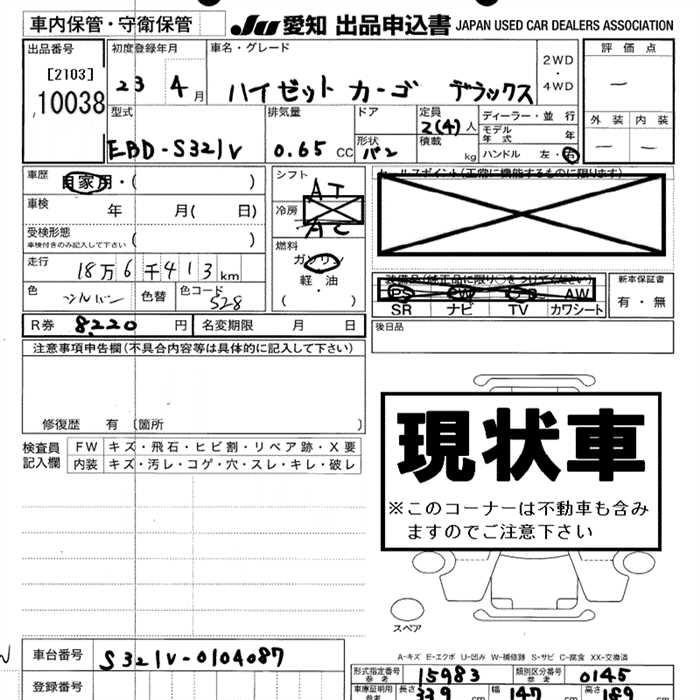 車内保管・守衛保管 JU 愛知 出品申込書 JAPAN USED CAR DEALERS ASSOCIATION
出品番号 初度登録年月 車名・グレード 評価点
[2103] 23 4月 ハイゼット カーゴ デラックス 2WD・4WD ー
10038
型式 排気量 ドア 定員 2(4)人 ディーラー・並行 外装 内装
EBD-S321V 0.65 CC 形状 バン 積載 kg モデル年式 年 ー ー
ハンドル 左・右
車歴 自家用・( ) シフト AT セールスポイント(正常に機能するものに限ります)
車検 年 月( 日) 冷房 AC
受検形態 ( )
車検付きのみ記入して下さい
燃料 ガソリン
走行 18万6千413km 軽・油
( )
色 シルバー 色替 色コード S28 装備品(純正品に限り○をつけてください) 新車保証書
PS PW AW 有・無
SR ナビ TV カワシート
R券 8,220円 名変期限 月 日 後日品
注意事項申告欄(不具合内容等は具体的に記入して下さい)
修復歴 有 〔箇所 〕
検査員記入欄 FW キズ・飛石・ヒビ割・リペア跡・X要
内装 キズ・汚レ・コゲ・穴・スレ・キレ・破レ
現状車
※このコーナーは不動車も含み
ますのでご注意下さい
スペア
A-キズ E-エクボ U-凹み W-補修跡 S-サビ C-腐食 XX-交換済
車台番号 S321V-0104087
登録番号
形式指定番号 参考 15983 類別区分番号 参考 0145
車庫証明用 参考 長さ 339 cm 幅 147 cm 高さ 189 cm